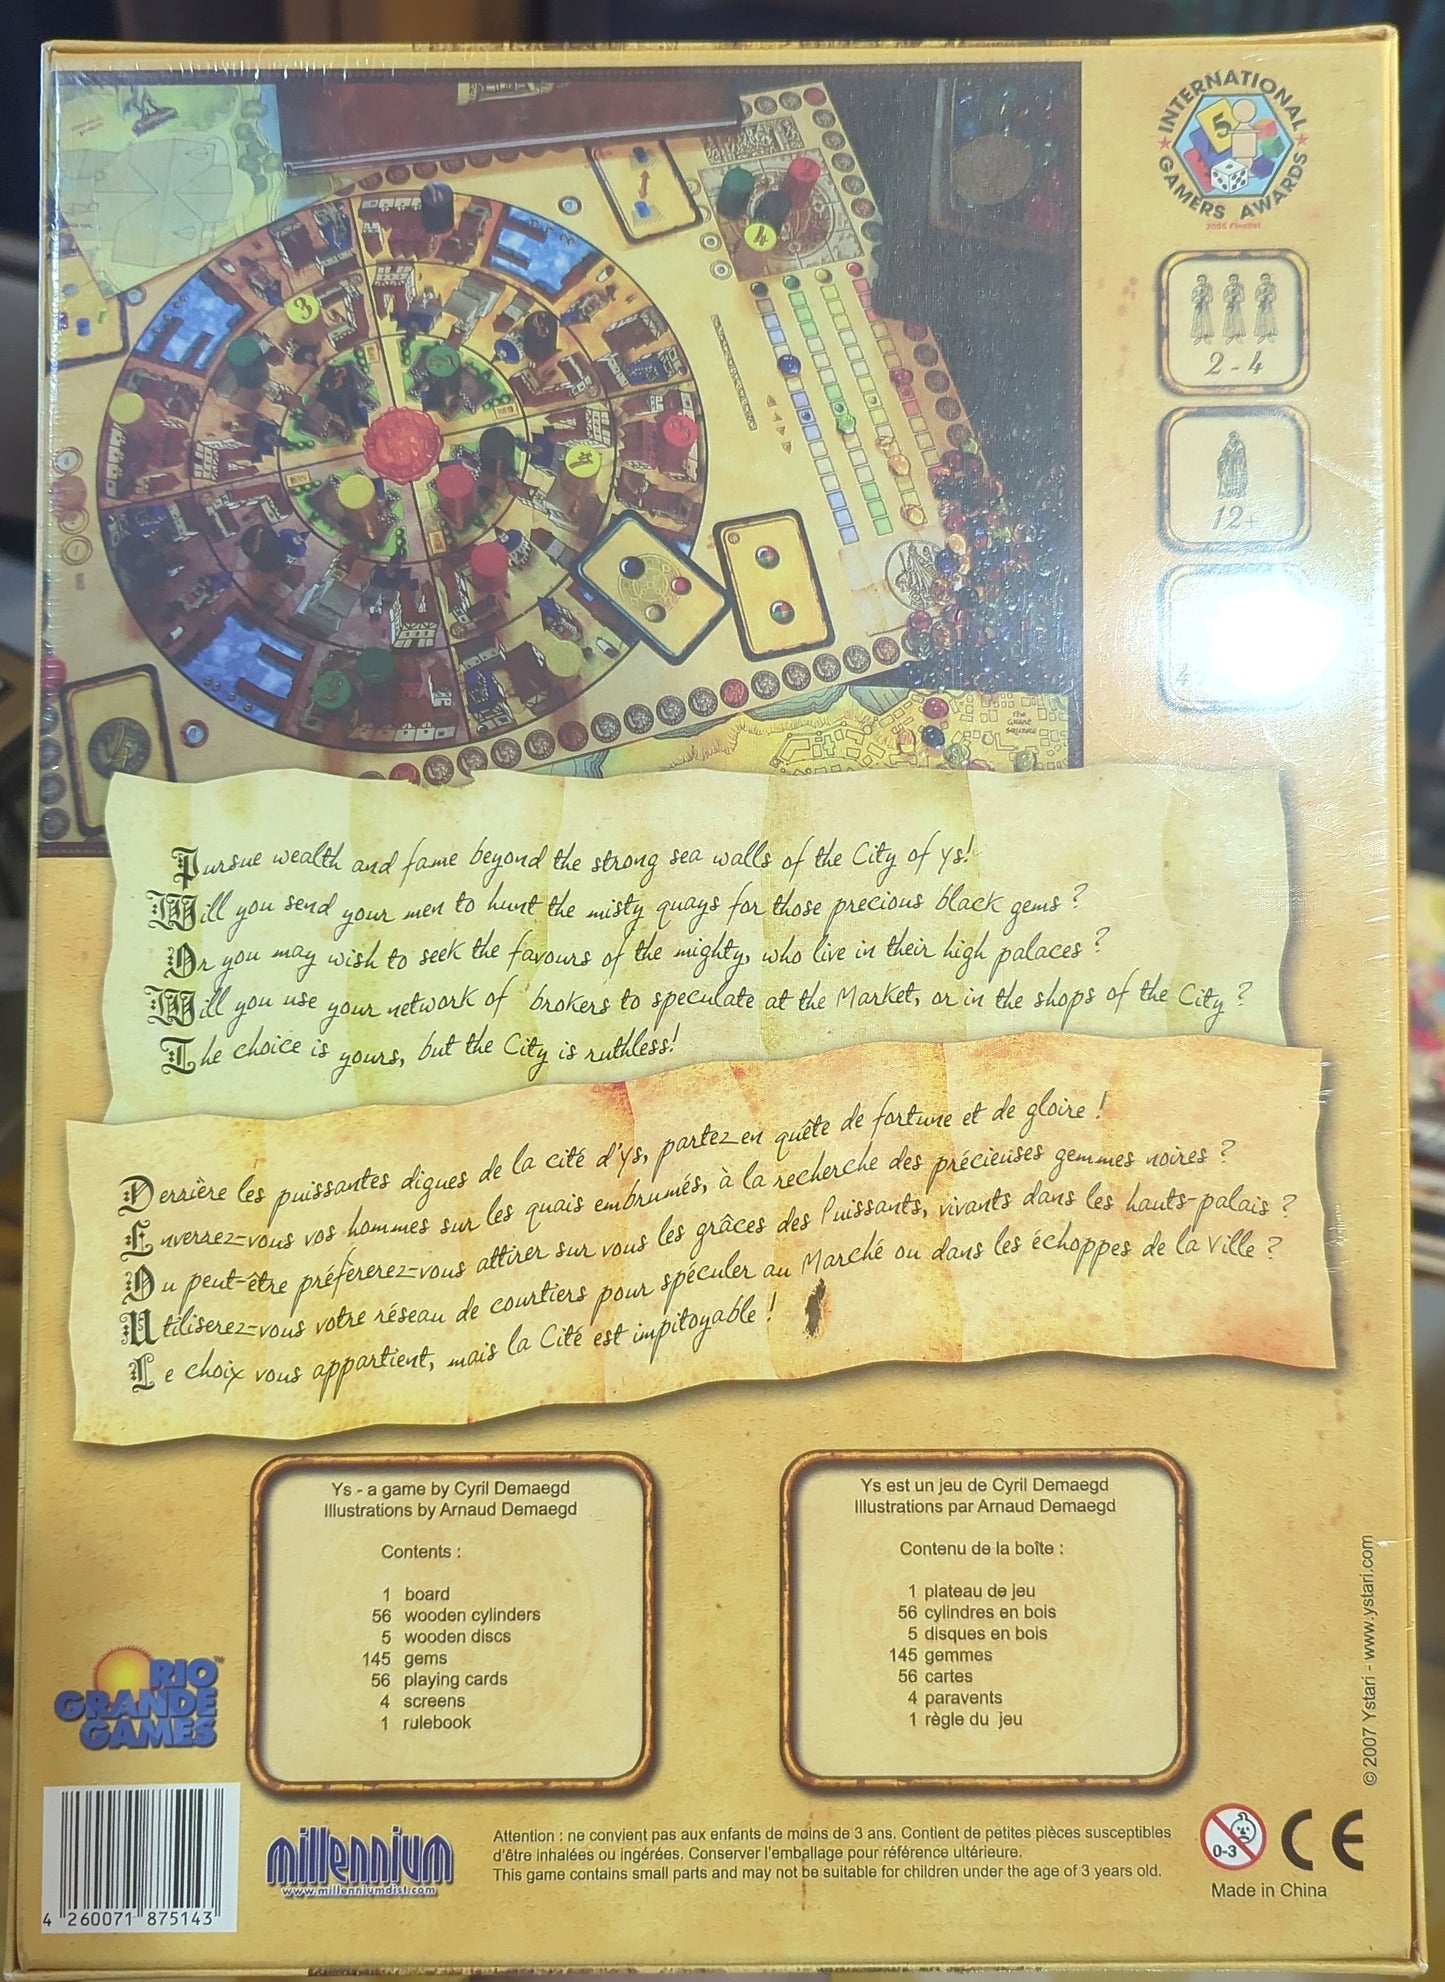 INTERNATIONAL
GAMERS AWARDS
5
2005 Finalist
2 - 4
12+
4
3
1
3
2
The
Great
Square
Pursue wealth and fame beyond the strong sea walls of the City of ys!
Will you send your men to hunt the misty quays for those precious black gems ?
Or you may wish to seek the favours of the mighty, who live in their high palaces ?
Will you use your network of brokers to speculate at the Market, or in the shops of the City ?
The choice is yours, but the City is ruthless!
Derrière les puissantes digues de la cité d'ys, partez en quête de fortune et de gloire !
Enverrez-vous vos hommes sur les quais embrumés, à la recherche des précieuses gemmes noires ?
Ou peut-être préfèrerez-vous attirer sur vous les grâces des Puissants, vivants dans les hauts-palais ?
Utiliserez-vous votre réseau de courtiers pour spéculer au Marché ou dans les échoppes de la ville ?
Le choix vous appartient, mais la Cité est impitoyable !
Ys - a game by Cyril Demaegd
Illustrations by Arnaud Demaegd
Contents :
1 board
56 wooden cylinders
5 wooden discs
145 gems
56 playing cards
4 screens
1 rulebook
Ys est un jeu de Cyril Demaegd
Illustrations par Arnaud Demaegd
Contenu de la boîte :
1 plateau de jeu
56 cylindres en bois
5 disques en bois
145 gemmes
56 cartes
4 paravents
1 règle du jeu
© 2007 Ystari - www.ystari.com
RIO
GRANDE
GAMES
TM
4 260071 875143
millennium
www.millenniumdist.com
Attention : ne convient pas aux enfants de moins de 3 ans. Contient de petites pièces susceptibles
d'être inhalées ou ingérées. Conserver l'emballage pour référence ultérieure.
This game contains small parts and may not be suitable for children under the age of 3 years old.
0-3
CE
Made in China